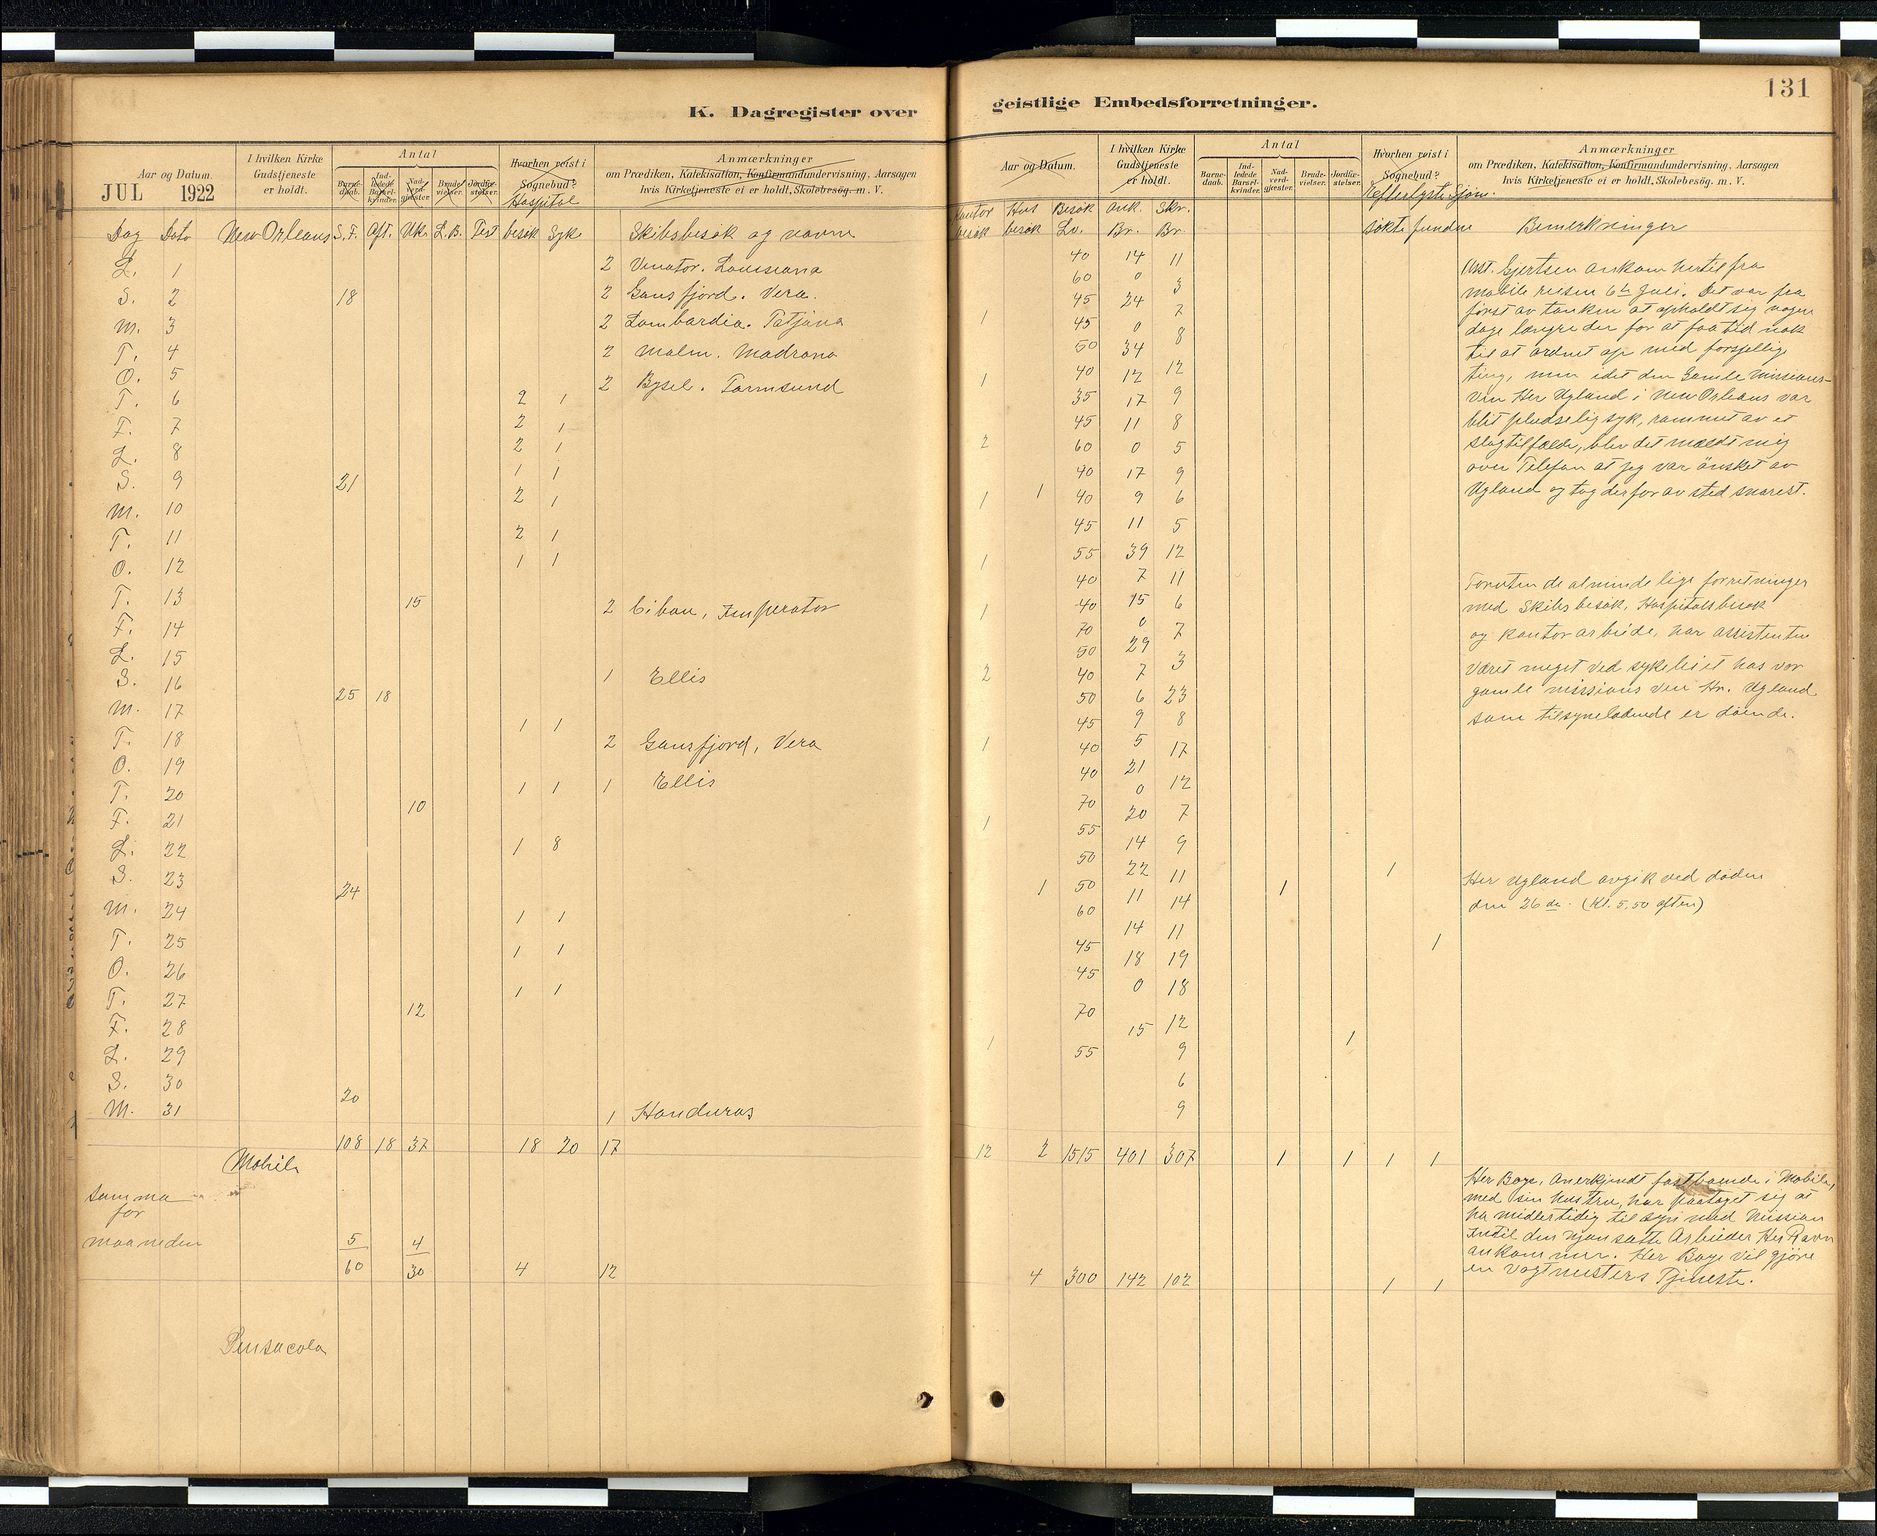 K. Dagregister over
Aar og Datum.
I hvilken Kirke Gudstjeneste er holdt.
Antal
Barnedaab.
Indledede Barselkvinder.
Nadverdgjester.
Brudevielser.
Jordfæstelser.
Hvorhen reist i Sognebud?
Anmærkninger
om Prædiken, Katekisation, Konfirmandundervisning, Aarsagen
hvis Kirketjeneste ei er holdt, Skolebesøg. m. V.
JUL 1922
Hospital
Dag Dato New Orleans S.F. Aft. Uke L.B. Fest besøk Syke Skibsbesøk og navne
L. 1 2 Venator. Louisiana
S. 2 18 2 Gansfjord. Vera.
M. 3 2 Lombardia. Tatjana
T. 4 2 Malm. Madrono
O. 5 2 Bysel. Tarmsund
T. 6 2 1
F. 7 2 1
L. 8 2 1
S. 9 21 1 1
M. 10 2 1
T. 11 2 1
O. 12 1 1
T. 13 15 2 Ciban, Imperator
F. 14
L. 15
S. 16 25 18 1 Ellis
M. 17 1 1
T. 18 2 Gansfjord, Vera
O. 19
T. 20 10 1 1 1 Ellis
F. 21
L. 22 1 8
S. 23 24
M. 24 1 1
T. 25 1 1
O. 26
T. 27 12 1 1
F. 28
L. 29
S. 30 20
M. 31 1 Honduras
108 18 37 18 20 17
Mobile
Summa
for
maaneden 5 4
60 30 4 12
Pensacola
geistlige Embedsforretninger.
131
Aar og Datum.
I hvilken Kirke Gudstjeneste er holdt.
Antal
Barnedaab.
Indledede Barselkvinder.
Nadverdgjester.
Brudevielser.
Jordfæstelser.
Hvorhen reist i Sognebud?
Anmærkninger
om Prædiken, Katekisation, Konfirmandundervisning, Aarsagen
hvis Kirketjeneste ei er holdt, Skolebesøg. m. V.
Efterlyste Sjøm.
Kontor Hus Besøk Ank. Skr.
besøk besøk Lv. Br. Br. søkte fundne Bemerkninger
40 14 11
60 0 3
1 45 24 7
45 0 8
50 34 12
1 40 12 9
35 17 8
45 11 5
2 60 0 9
40 17 6
1 1 40 9 5
45 11 12
1 55 39 11
40 7 6
1 40 15 7
70 0 3
50 29
2 40 7 23
50 6 8
45 9 17
1 40 5
40 21 12
70 0 7
1 55 20 9
50 14 11
1 50 22 14 1 1
60 11 11
45 14 19 1
45 18 18
70 0 12
1 55 15 9 1
6
9
12 2 1515 401 307 1 1 1 1
4 300 142 102 1 1
Asst. Gjertsen ankom hertil fra
Mobile reisen 6te Juli. Det var fra
først av tanken at opholdt sig nogen
dage længre der for at faa tid nok
til at ordnet op med forsjellig
ting, men idet den Gamle Missions-
ven Her Ugland i New Orleans var
blit pludselig syk, rammet av et
slagtilfælde, blev det mældt mig
over Telefon at jeg var ønsket av
Ugland og tog derfor av sted snarest.
Foruten de almindelige forretninger
med Skibsbesøk, Hospitalsbesøk
og kontor arbeide, har assistenten
været meget ved sykeleiet hos vor
gamle missions ven Hr. Ugland
som tilsyneladende er døende.
Her Ugland avgik ved døden
den 26 de. (Kl. 5,50 aften)
Her Boye, Anerkjendt fastboende i Mobile,
med sin hustru, har paataget sig at
ha midlertidig tilsyn med Mission
Indtil den nyansatte Arbeider Her Ravn
ankommer. Her Boye vil gjøre
en Vagtmesters Tjeneste.